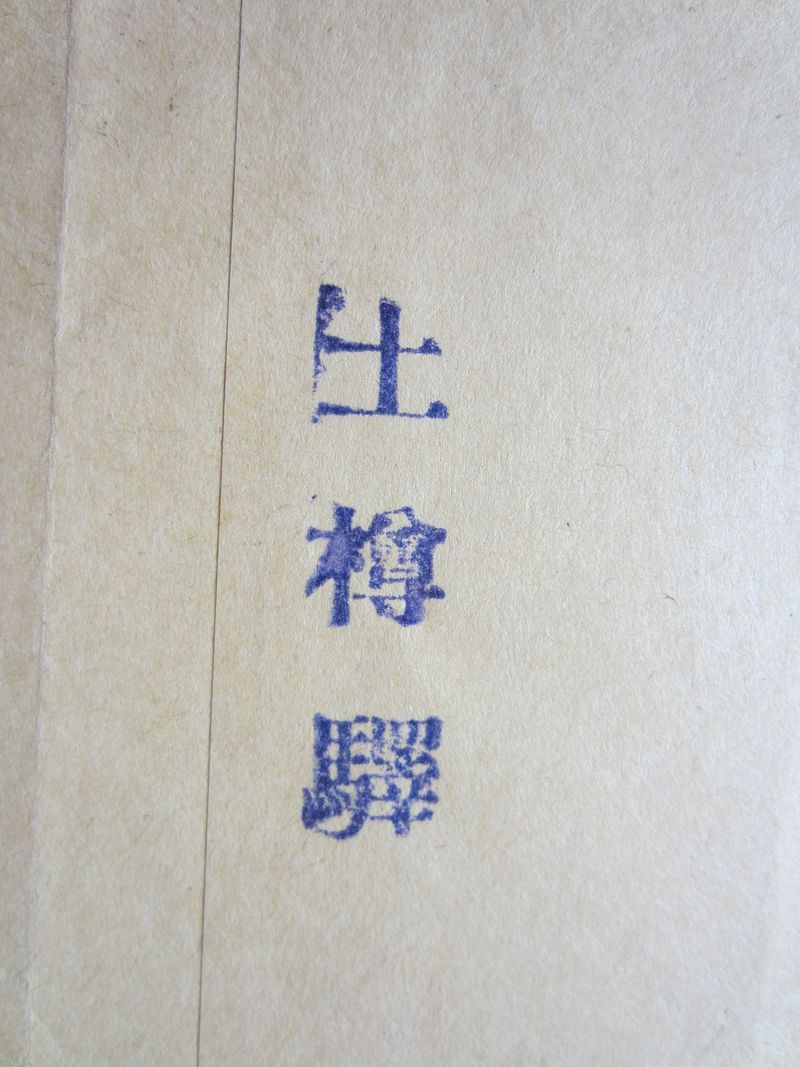 土樽驛